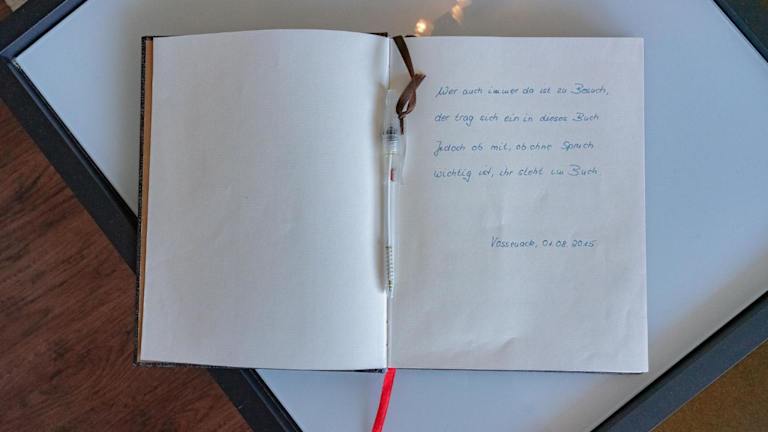 Wer auch immer da ist zu Besuch,
der trag sich ein in dieses Buch
Jedoch ob mit, ob ohne Spruch
wichtig ist, ihr steht im Buch
Vossenack, 01.08.2015